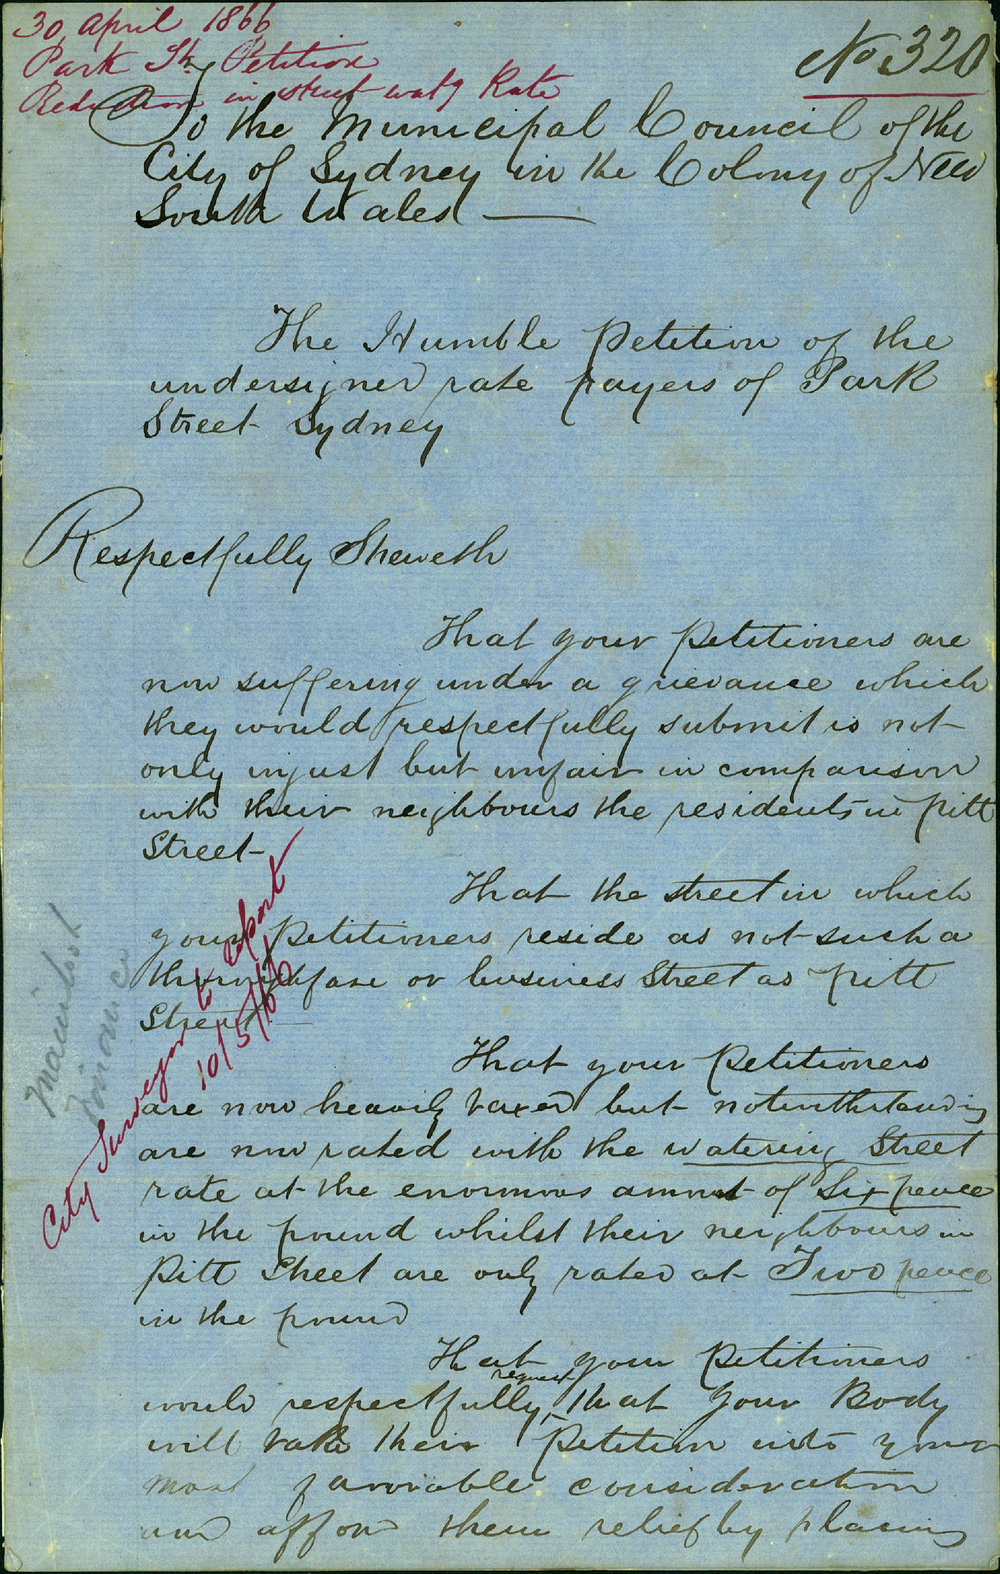 30 April 1866
Park St Petition
Reduction in street watg Rate
No 320
To the Municipal Council of the
City of Sydney in the Colony of New
South Wales
The Humble Petition of the
undersigned rate payers of Park
Street Sydney
Respectfully Sheweth
That your Petitioners are
now suffering under a grievance which
they would respectfully submit is not
only unjust but unfair in comparison
with their neighbours the residents in Pitt
Street
That the street in which
your Petitioners reside as not such a
thoroughfare or business Street as Pitt
Street
That your Petitioners
are now heavily taxed but notwithstanding
are now rated with the watering Street
rate at the enormous amount of Six pence
in the pound whilst their neighbours in
Pitt Street are only rated at Two pence
in the pound
That your Petitioners
would respectfully request that Your Body
will take their Petition into your
most favorable consideration
and afford them relief by placing
City Surveyor to report
10/5/66
Finance